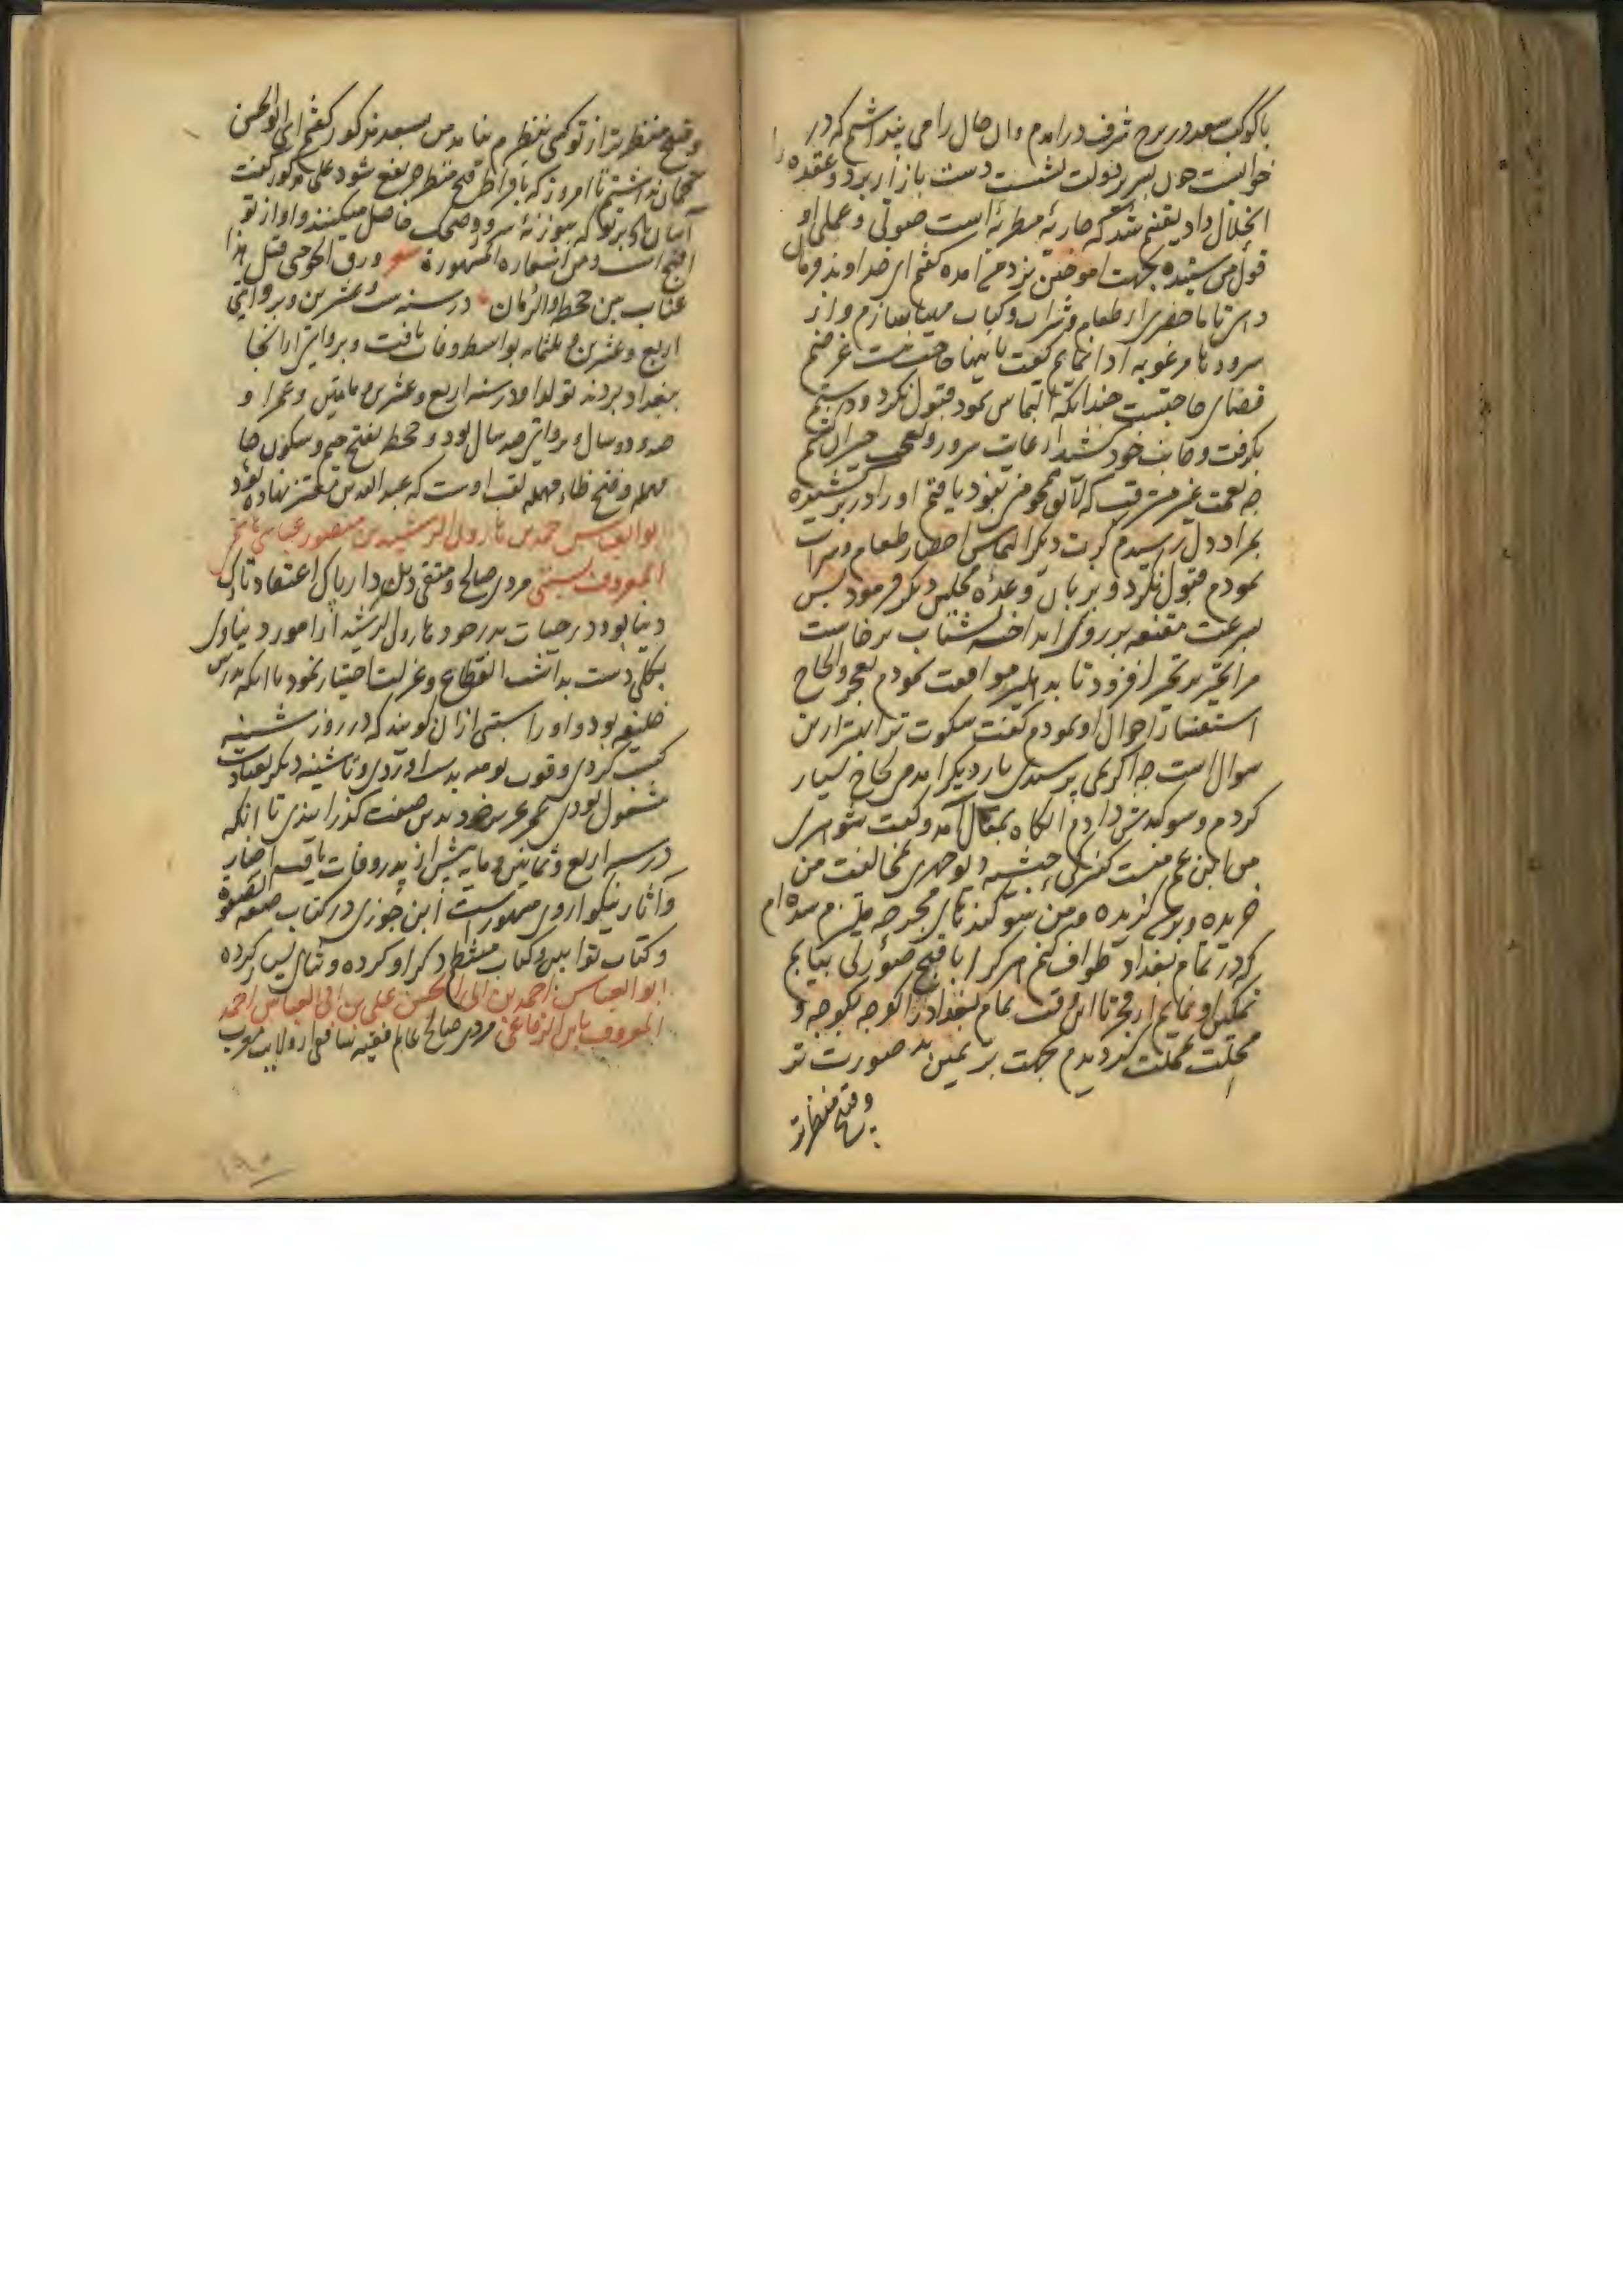 با کوکب سعد در برج شرف درامدم وان حال را می پنداشتم که در
خوابست چون بسریر دولت نشست دست بازار برد و عقده را
انحلال داد یقینم شد که جاریهٔ مطربهٔ است صوتی و عملی او
قولی من شنیده بجهت اموختن نزد من آمده گفتم ای خداوند فرمان
ده تا ما حضری از طعام و شراب و کباب مهیا سازم و از
سرودها مرغوبه ادا نمایم گفت باینها حاجت نیست غرضم
قضای حاجتیست چندانکه التماس نمود قبول نکرد و دستم
بگرفت و جانب خود کشید از غایت سرور و تعجب حیران گشتم
چه نعمت غیر مترقب که لایق همچو من نبود یافتم او را در بر کشیده
بمراد دل رسیدم کرت دیگر التماس احضار طعام و شراب
نمودم قبول نکرد و بر زبان وعدهٔ مجلس دیگر فرمود پس
بسرعت مقنعه بر روی انداخته بشتاب برخاست
مرا تحیر بر تحیر افزود تا بدهلیز موافقت نمودم بعجز و الحاح
استفسار احوال او نمودم گفت سکوت ترا بهتر ازین
سوال است چرا کریمی پرسیدی بار دیگر امدم الحاح بسیار
کردم و سوکندش دادم آنکاه بمقال آمد و گفت شوهری
من ابن عم منست کنیزکی حبشیه دیو چهری بمخالفت من
خریده و بر من گزیده و من بسوکندهای مجرجه ملتزم شده ام
که در تمام بغداد طواف کنم هر کرا با قبح صورتی بیابم
تمکین او نمایم از فجر تا این وقت تمام بغداد را کوچه بکوچه و
محلت بمحلت گردیدم بجهت بر یمین بد صورت تر
و قبیح منظر تر
و قبیح منظر تر از تو کسی بنظرم نیامد من بسعد مذکور گفتم ای ابوالحسن
گمان نداشتم تا امروز که بافراط قبح منظر هم نفع شود علی مذکور گفت
آسان باد بر تو که بوزنهٔ سرود و ضحک حاصل میکنند و اواز تو
اقبح است و من اشعاره المشهورة شعر ورق الجو حتی قیل هذا
عتاب بین جحظة والزمان در سنه ست و عشرین و بروایتی
اربع و عشرین و ثلثمایه بواسط وفات یافت و بروایتی از انجا
ببغداد بردند تولد او در سنه اربع و عشرین و مایتین و عمر او
صد و دو سال و بروایتی صد سال بود و جحظه بفتح جیم و سکون حا
مهمله و فتح ظاء مهمله لقب اوست که عبدالله بن معتز نهاده بود
ابوالعباس احمد بن هارون الرشید بن منصور عباسی هاشمی
المعروف بسبتی مردی صالح و متقی و پاک اعتقاد تارک
دنیا بود در حیات پدر خود هارون الرشید از امور دنیاوی
بکلی دست بداشت انقطاع و عزلت اختیار نمود با انکه پدرش
خلیفه بود و او را سبتی از ان کویند که در روز شنبه
کسب کردی و قوت یومیه بدست آوردی و تا شنبه دیگر بعبادت
مشغول بودی عمر عزیز خود بدین صفت گذرانیدی تا انکه
در سنه اربع و ثمانین و مایه پیش از پدر وفات یافت اخبار
و آثار نیکو از وی مشهور است ابن جوزی در کتاب صفوة الصفوة
و کتاب توابین و کتاب منتظم ذکر او کرده و ثنای بسیار کرده
ابوالعباس احمد بن ابی الحسن علی بن ابی العباس احمد
المعروف بابن الرفاعی مردی صالح عالم فقیه شافعی از ولایت مغرب
۱۹۰